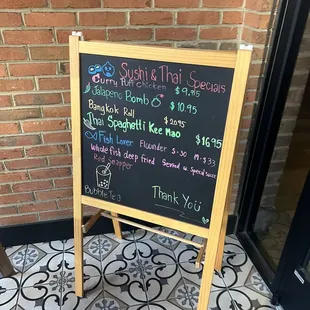 Sushi & Thai Specials
Curry Puff chicken $9.95
Jalapeno Bomb $10.95
Bangkok Roll $20.95
Thai Spaghetti Kee Mao $16.95
Fish Lover Flounder S-30 M-33
Whole fish deep fried Served w. Special sauce
Red Snapper
Bubble Tea
Thank You